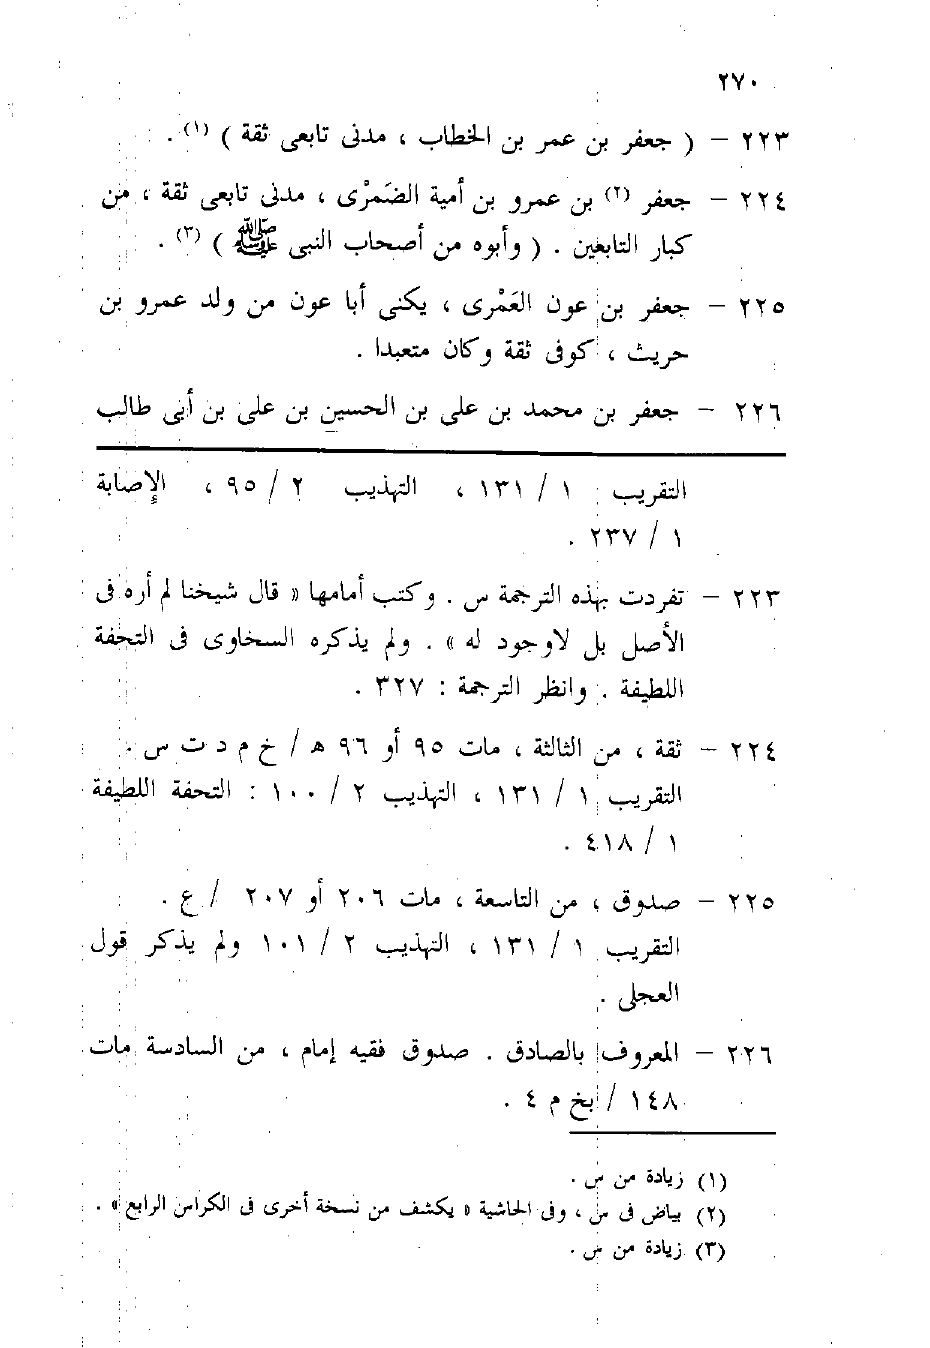 ٢٧٠
٢٢٣ – ( جعفر بن عمر بن الخطاب ، مدنى تابعى ثقة ) (١) .
٢٢٤ – جعفر (٢) بن عمرو بن أمية الضَمْرْى ، مدنى تابعى ثقة ، من
كبار التابعين . ( وأبوه من أصحاب النبى ﷺ ) (٣) .
٢٢٥ – جعفر بن عون العَمْرى ، يكنى أبا عون من ولد عمرو بن
حريث ، كوفى ثقة وكان متعبدا .
٢٢٦ – جعفر بن محمد بن على بن الحسين بن على بن أبى طالب
التقريب ١ / ١٣١ ، التهذيب ٢ / ٩٥ ، الإصابة
١ / ٢٣٧ .
٢٢٣ – تفردت بهذه الترجمة س . وكتب أمامها « قال شيخنا لم أره فى
الأصل بل لاوجود له » . ولم يذكره السخاوى فى التحفة
اللطيفة . وانظر الترجمة : ٣٢٧ .
٢٢٤ – ثقة ، من الثالثة ، مات ٩٥ أو ٩٦ هـ / خ م د ت س .
التقريب ١ / ١٣١ ، التهذيب ٢ / ١٠٠ : التحفة اللطيفة
١ / ٤١٨ .
٢٢٥ – صدوق ، من التاسعة ، مات ٢٠٦ أو ٢٠٧ / ع .
التقريب ١ / ١٣١ ، التهذيب ٢ / ١٠١ ولم يذكر قول
العجلى .
٢٢٦ – المعروف بالصادق . صدوق فقيه إمام ، من السادسة مات
١٤٨ / بخ م ٤ .
(١) زيادة من س .
(٢) بياض فى س ، وفى الحاشية « يكشف من نسخة أخرى فى الكراس الرابع » .
(٣) زيادة من س .